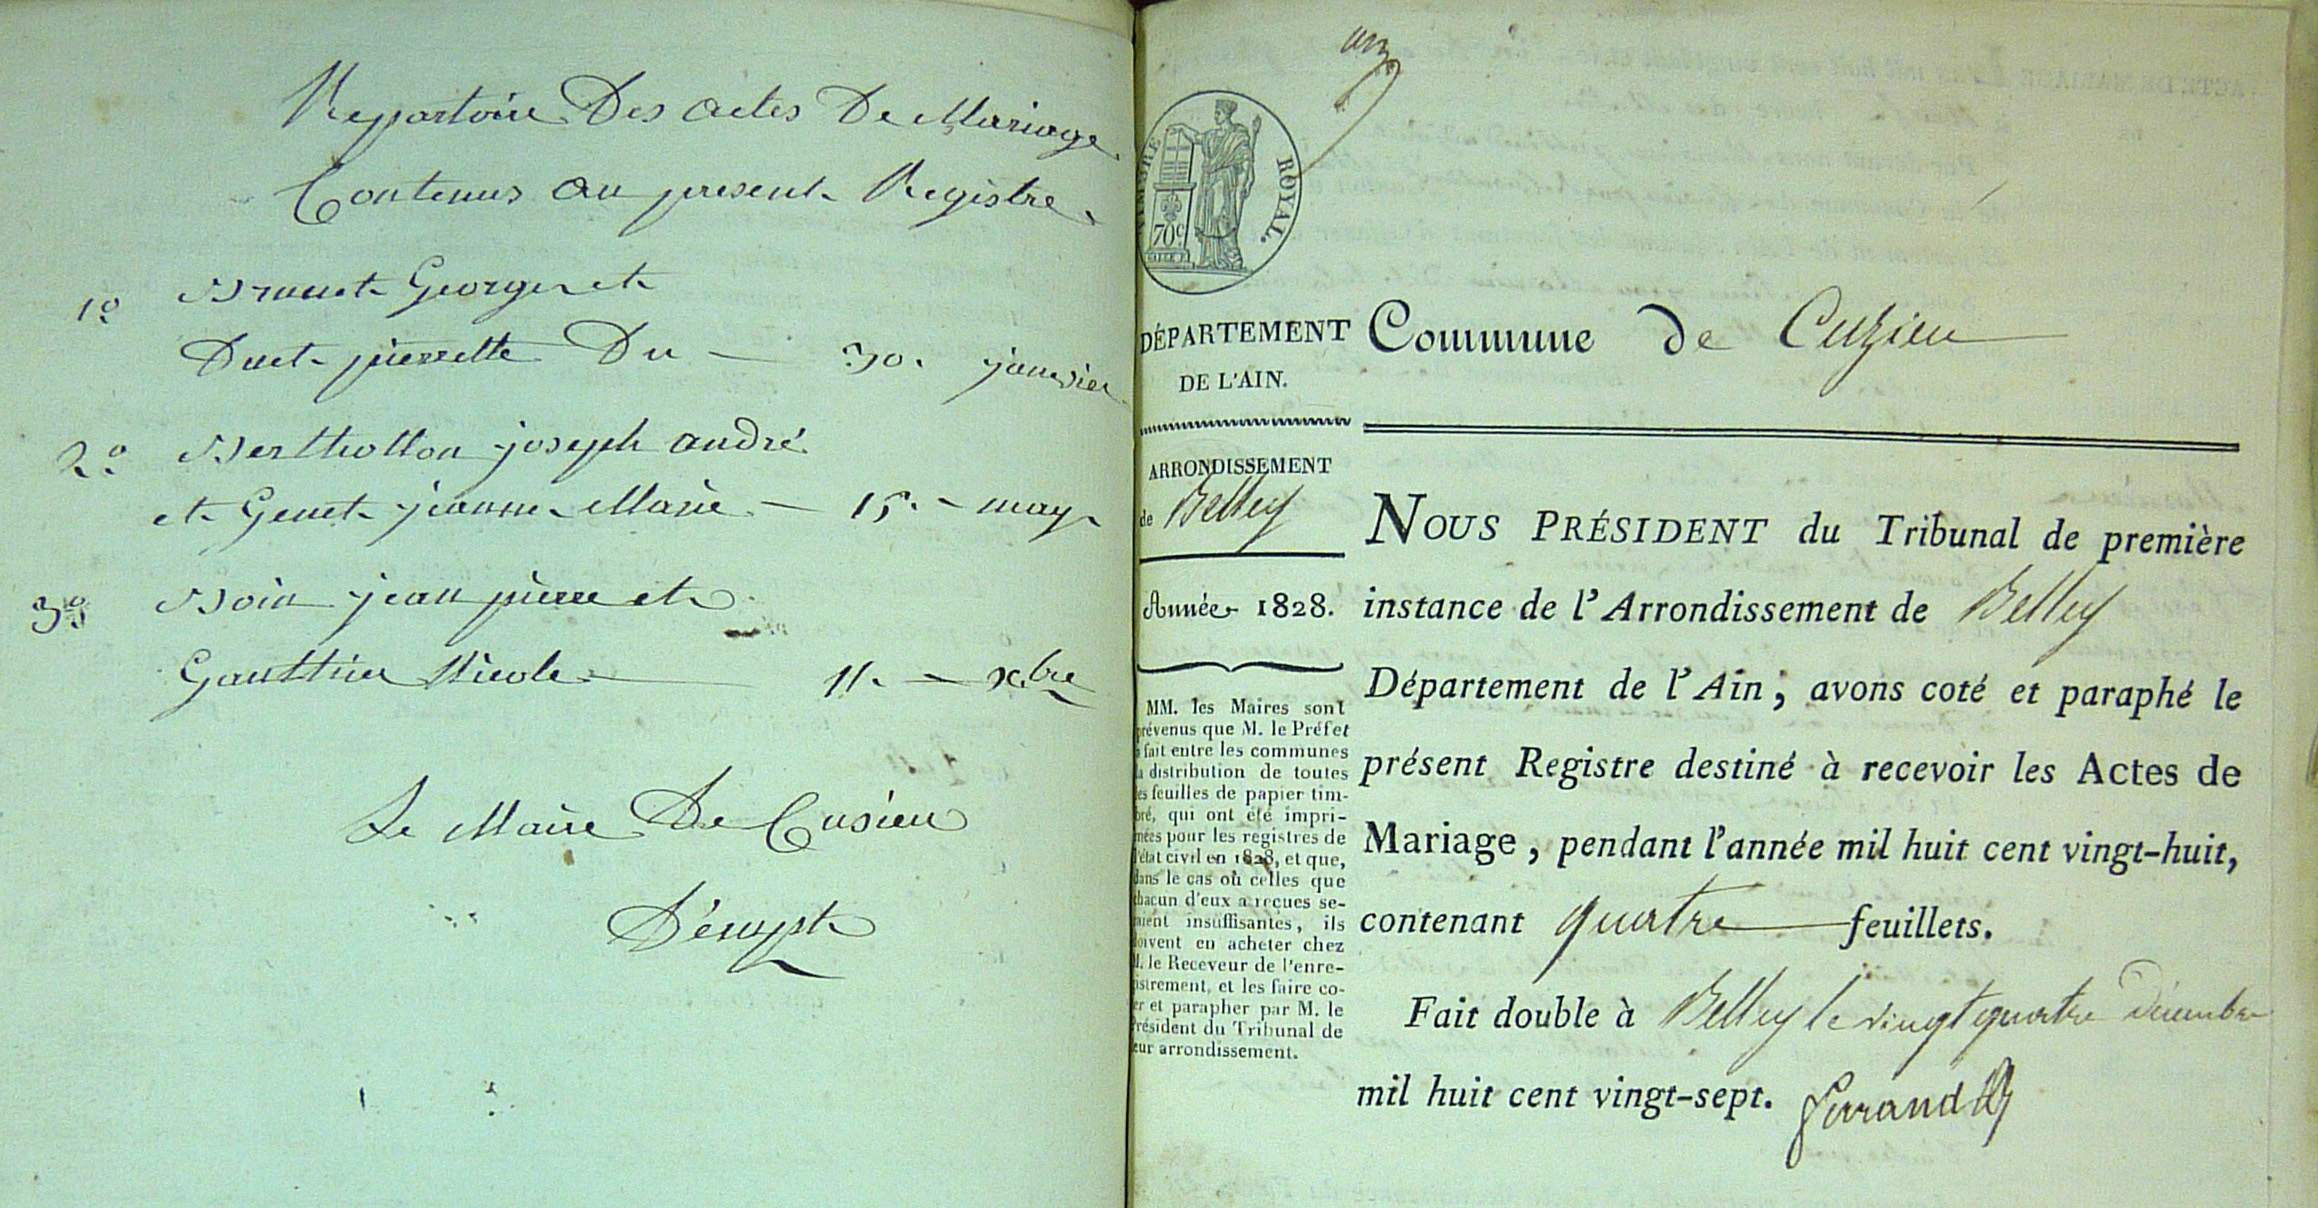 Repertoire Des actes De Mariage
Contenus au present Registre
1º Brunet George et
Duet pierrette Du — 30. janvier
2º Bertholton joseph andré
et Genet jeanne Marie — 15. — may
3º Boin jean pierre et
Gautthier Nicole — 11. — Xbre
Le Maire De Cusieu
an
TIMBRE ROYAL.
70c
DÉPARTEMENT
DE L'AIN.
ARRONDISSEMENT
de Belley
Année 1828.
MM. les Maires sont
prévenus que M. le Préfet
a fait entre les communes
la distribution de toutes
les feuilles de papier tim-
bré, qui ont été impri-
mées pour les registres de
l'état civil en 1828, et que,
dans le cas où celles que
chacun d'eux a reçues se-
raient insuffisantes, ils
doivent en acheter chez
M. le Receveur de l'enre-
gistrement, et les faire co-
ter et parapher par M. le
Président du Tribunal de
leur arrondissement.
Commune de Cuzieu
NOUS PRÉSIDENT du Tribunal de première
instance de l'Arrondissement de Belley
Département de l'Ain ; avons coté et paraphé le
présent Registre destiné à recevoir les Actes de
Mariage , pendant l'année mil huit cent vingt-huit,
contenant quatre — feuillets.
Fait double à Belley le vingt quatre Décembre
mil huit cent vingt-sept. Ferrand